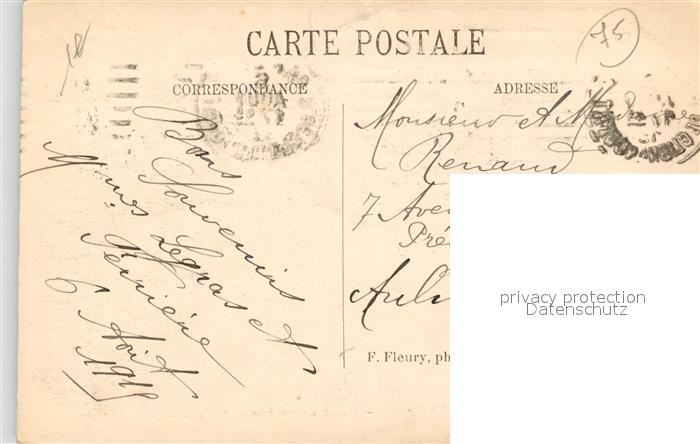 75
CARTE POSTALE
CORRESPONDANCE
ADRESSE
Bons
Souvenirs
Mmes Legras et
Perrière
6 Août
Monsieur et Madame
Renaud
7 Aven
Pré
Auln
F. Fleury, ph
privacy protection
Datenschutz